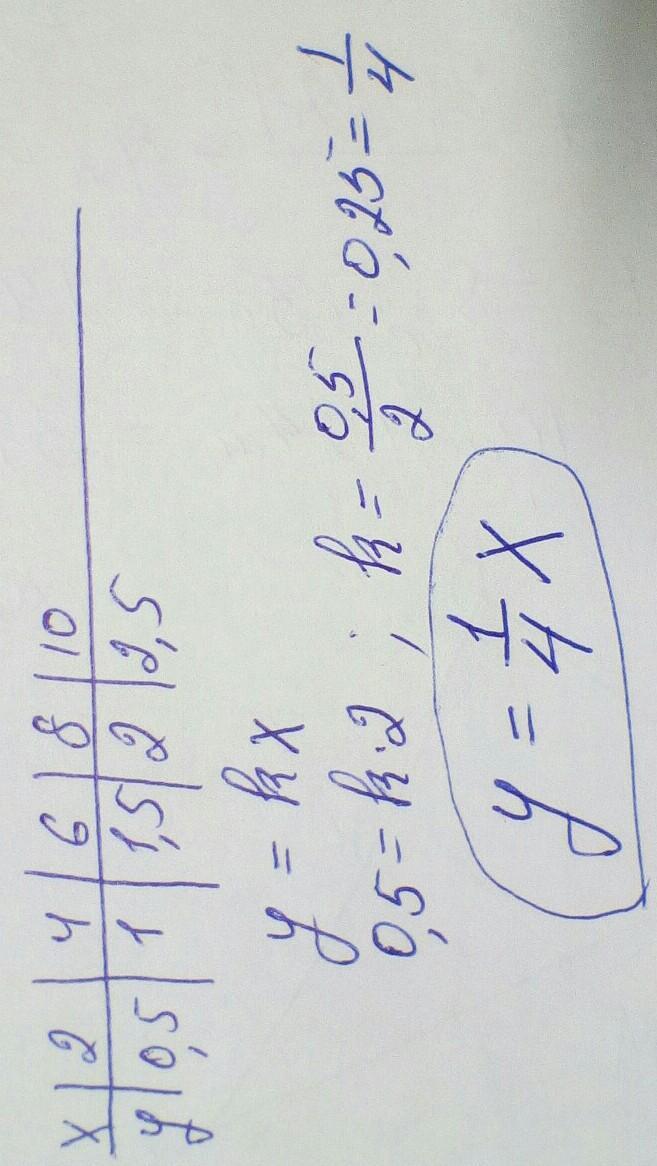 x | 2 | 4 | 6 | 8 | 10
y | 0,5 | 1 | 1,5 | 2 | 2,5
y = kx
0,5 = k·2 ; k = 0,5/2 = 0,25 = 1/4
y = 1/4 x